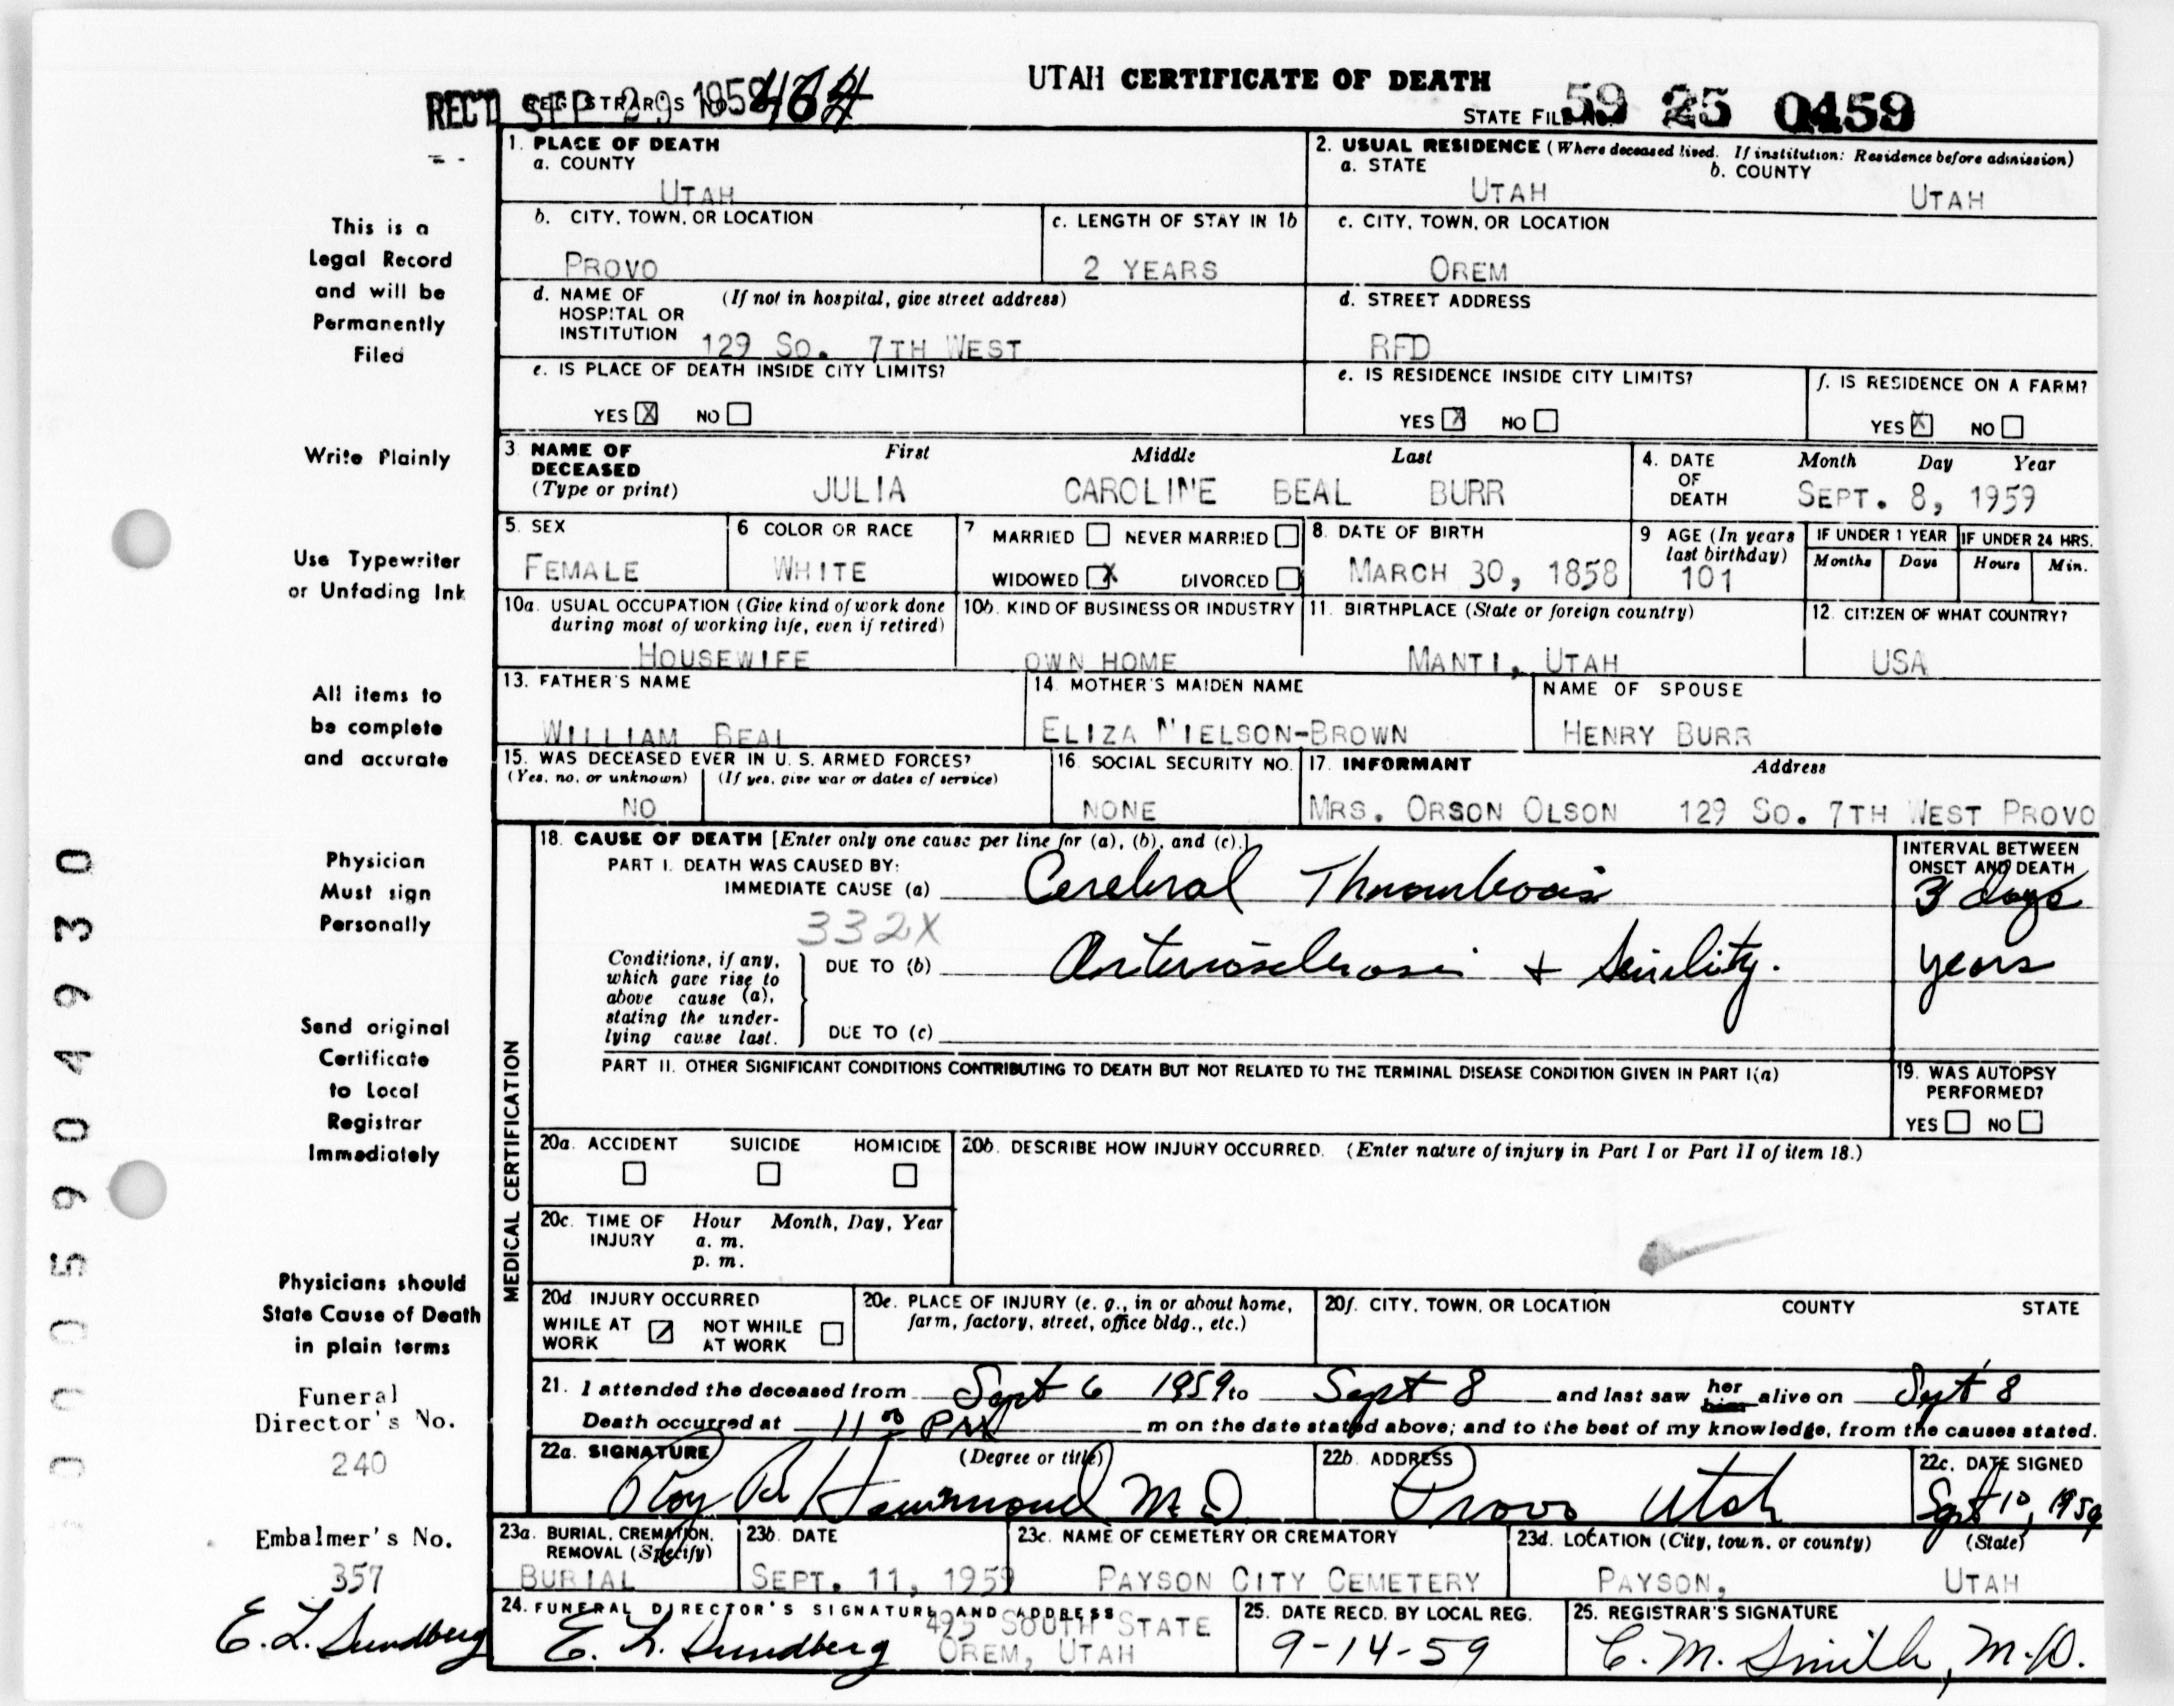 UTAH CERTIFICATE OF DEATH
REC'D SEP 29 1959 REGISTRAR'S NO. 464
STATE FILE NO. 59 25 0459
1. PLACE OF DEATH
a. COUNTY
UTAH
2. USUAL RESIDENCE (Where deceased lived. If institution: Residence before admission)
a. STATE
UTAH
b. COUNTY
UTAH
b. CITY, TOWN, OR LOCATION
PROVO
c. LENGTH OF STAY IN 1b
2 YEARS
c. CITY, TOWN, OR LOCATION
OREM
d. NAME OF HOSPITAL OR INSTITUTION (If not in hospital, give street address)
129 SO. 7TH WEST
d. STREET ADDRESS
RFD
e. IS PLACE OF DEATH INSIDE CITY LIMITS?
YES X NO
e. IS RESIDENCE INSIDE CITY LIMITS?
YES X NO
f. IS RESIDENCE ON A FARM?
YES X NO
3. NAME OF DECEASED (Type or print)
First Middle Last
JULIA CAROLINE BEAL BURR
4. DATE OF DEATH
Month Day Year
SEPT. 8, 1959
5. SEX
FEMALE
6 COLOR OR RACE
WHITE
7 MARRIED NEVER MARRIED
WIDOWED X DIVORCED
8. DATE OF BIRTH
MARCH 30, 1858
9 AGE (In years last birthday)
101
IF UNDER 1 YEAR
Months Days
IF UNDER 24 HRS.
Hours Min.
10a. USUAL OCCUPATION (Give kind of work done during most of working life, even if retired)
HOUSEWIFE
10b. KIND OF BUSINESS OR INDUSTRY
OWN HOME
11. BIRTHPLACE (State or foreign country)
MANTI, UTAH
12. CITIZEN OF WHAT COUNTRY?
USA
13. FATHER'S NAME
WILLIAM BEAL
14. MOTHER'S MAIDEN NAME
ELIZA NIELSON-BROWN
NAME OF SPOUSE
HENRY BURR
15. WAS DECEASED EVER IN U. S. ARMED FORCES?
(Yes, no, or unknown) (If yes, give war or dates of service)
NO
16. SOCIAL SECURITY NO.
NONE
17. INFORMANT Address
MRS. ORSON OLSON 129 SO. 7TH WEST PROVO
MEDICAL CERTIFICATION
18. CAUSE OF DEATH [Enter only one cause per line for (a), (b), and (c).]
PART I. DEATH WAS CAUSED BY:
IMMEDIATE CAUSE (a) Cerebral Thrombosis
332X
INTERVAL BETWEEN ONSET AND DEATH
3 days
Conditions, if any, which gave rise to above cause (a), stating the underlying cause last.
DUE TO (b) Arteriosclerosis + Senility.
years
DUE TO (c)
PART II. OTHER SIGNIFICANT CONDITIONS CONTRIBUTING TO DEATH BUT NOT RELATED TO THE TERMINAL DISEASE CONDITION GIVEN IN PART I(a)
19. WAS AUTOPSY PERFORMED?
YES NO
20a. ACCIDENT SUICIDE HOMICIDE
20b. DESCRIBE HOW INJURY OCCURRED. (Enter nature of injury in Part I or Part II of item 18.)
20c. TIME OF INJURY Hour Month, Day, Year
a. m.
p. m.
20d INJURY OCCURRED
WHILE AT WORK NOT WHILE AT WORK
20e. PLACE OF INJURY (e. g., in or about home, farm, factory, street, office bldg., etc.)
20f. CITY, TOWN, OR LOCATION COUNTY STATE
21. I attended the deceased from Sept 6 1959 to Sept 8 and last saw her him alive on Sept 8
Death occurred at 11 00 PM m on the date stated above; and to the best of my knowledge, from the causes stated.
22a. SIGNATURE (Degree or title)
Roy B Hammond M D
22b. ADDRESS
Provo Utah
22c. DATE SIGNED
Sept 10, 1959
23a. BURIAL, CREMATION, REMOVAL (Specify)
BURIAL
23b. DATE
SEPT. 11, 1959
23c. NAME OF CEMETERY OR CREMATORY
PAYSON CITY CEMETERY
23d. LOCATION (City, town, or county) (State)
PAYSON, UTAH
24. FUNERAL DIRECTOR'S SIGNATURE AND ADDRESS
E. L. Sundberg
495 SOUTH STATE
OREM, UTAH
25. DATE RECD. BY LOCAL REG.
9-14-59
25. REGISTRAR'S SIGNATURE
C. M. Smith, M.D.
This is a
Legal Record
and will be
Permanently
Filed
Write Plainly
Use Typewriter
or Unfading Ink
All items to
be complete
and accurate
Physician
Must sign
Personally
Send original
Certificate
to Local
Registrar
Immediately
Physicians should
State Cause of Death
in plain terms
Funeral
Director's No.
240
Embalmer's No.
357
E. L. Sundberg
0005904930